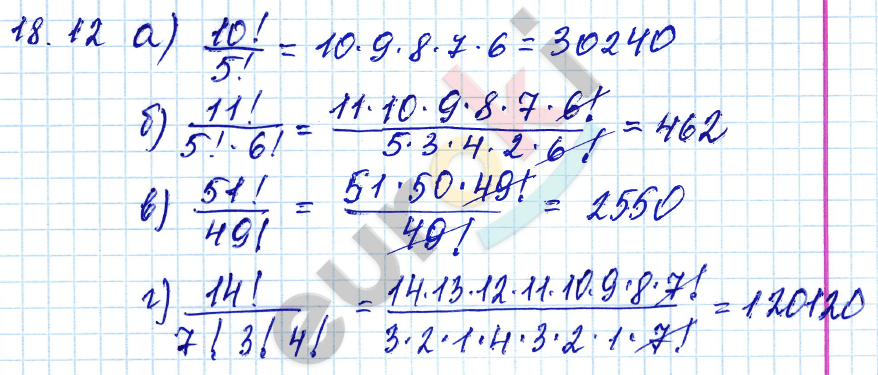 18.12 а) 10!/5! = 10·9·8·7·6 = 30240
б) 11!/(5!·6!) = (11·10·9·8·7·6!)/(5·3·4·2·6!) = 462
в) 51!/49! = (51·50·49!)/49! = 2550
г) 14!/(7! 3! 4!) = (14·13·12·11·10·9·8·7!)/(3·2·1·4·3·2·1·7!) = 120120
euroki